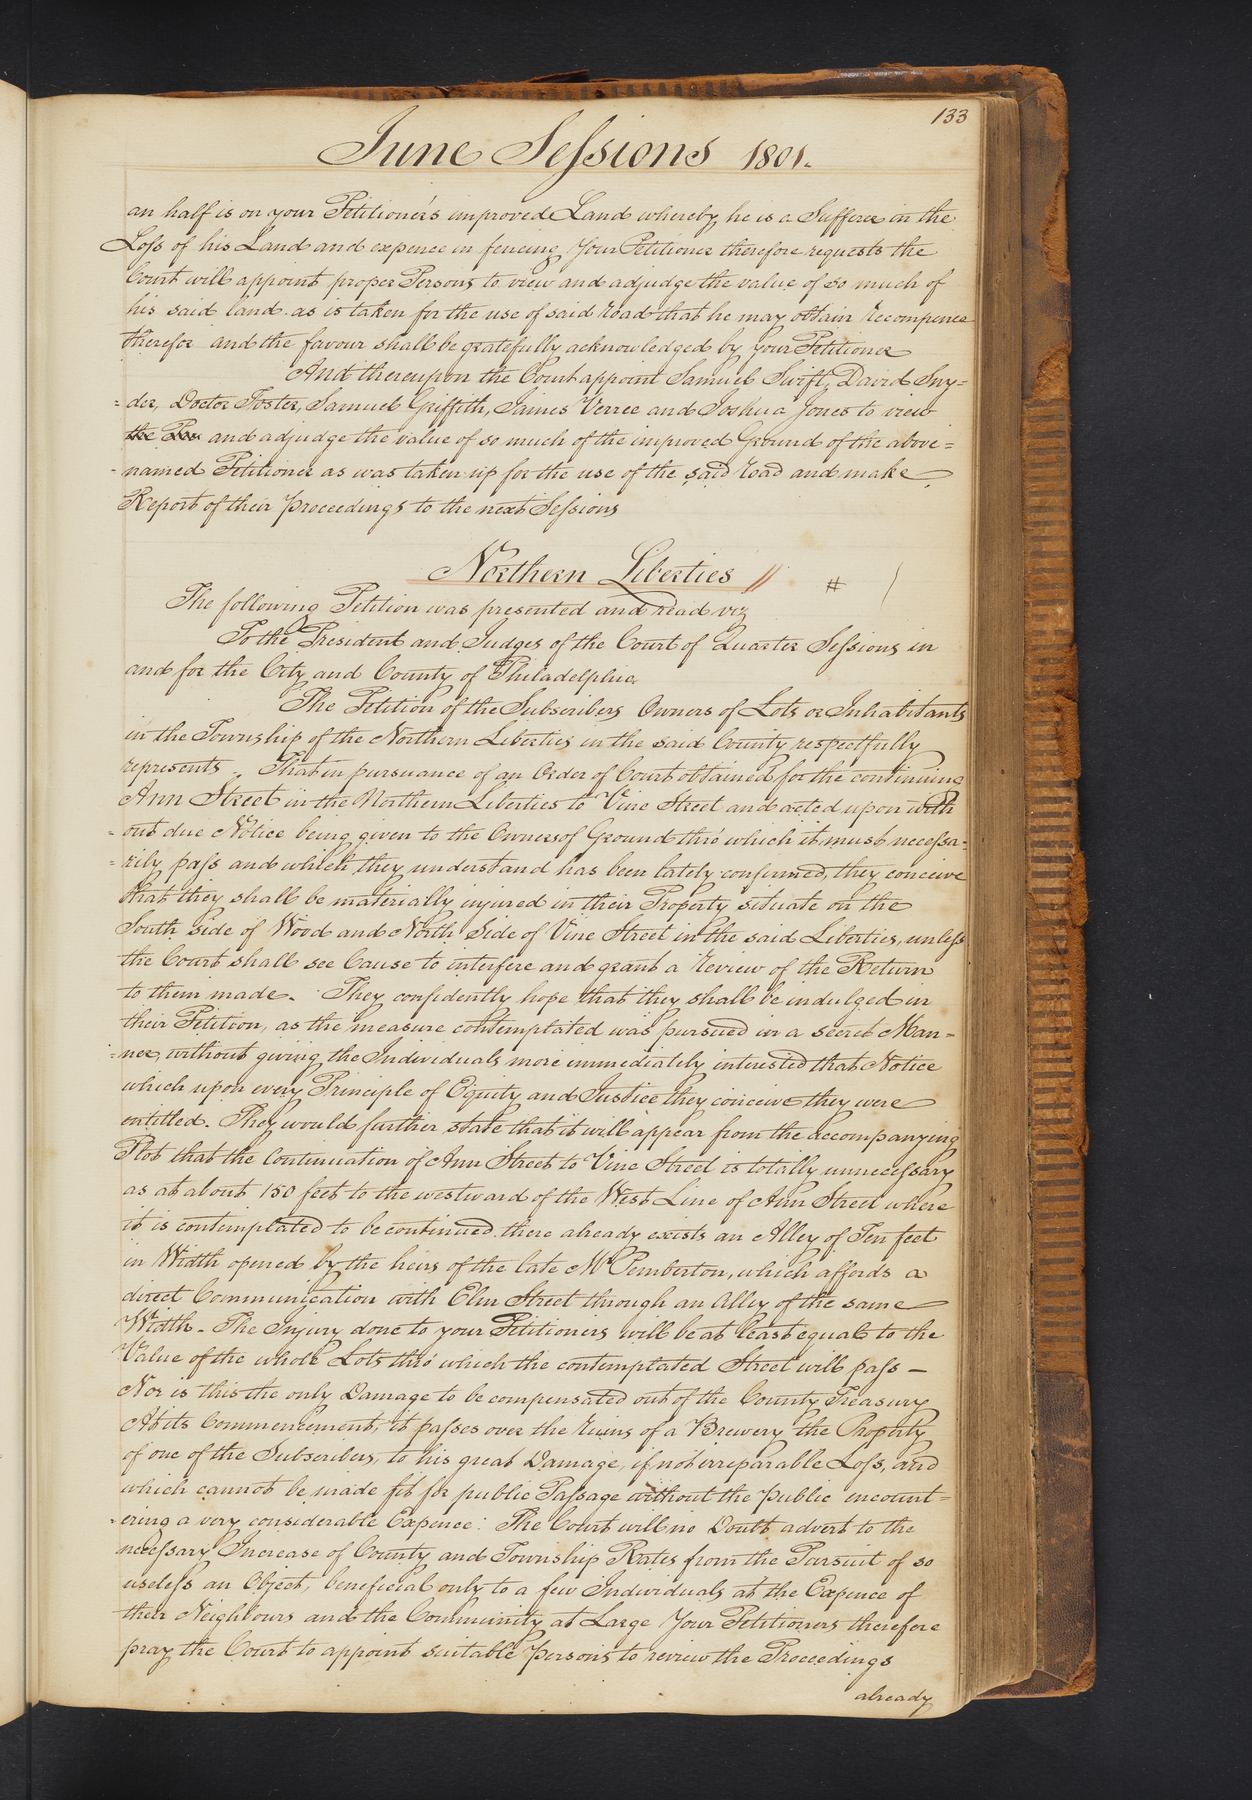 133
June Sessions 1801.
an half is on your Petitioner's improved Land whereby he is a Sufferer in the
Loss of his Land and expence in fencing Your Petitioner therefore requests the
Court will appoint proper Persons to view and adjudge the value of so much of
his said land as is taken for the use of said road that he may obtain recompence
therefor and the favour shall be gratefully acknowledged by your Petitioner
And thereupon the Court appoint Samuel Swift, David Sny=
=der, Doctor Foster, Samuel Griffith, James Verree and Joshua Jones to view
the and adjudge the value of so much of the improved Ground of the above=
-named Petitioner as was taken up for the use of the said road and make
Report of their proceedings to the next Sessions
Northern Liberties // #
The following Petition was presented and read viz
To the President and Judges of the Court of Quarter Sessions in
and for the City and County of Philadelphia
The Petition of the Subscribers Owners of Lots or Inhabitants
in the Township of the Northern Liberties in the said County respectfully
represents. That in pursuance of an Order of Court obtained for the continuing
Ann Street in the Northern Liberties to Vine Street and acted upon with
=out due Notice being given to the Owners of Ground thro' which it must necessa=
=rily pass and which they understand has been lately confirmed, they conceive
that they shall be materially injured in their Property situate on the
South side of Wood and North Side of Vine Street in the said Liberties, unless
the Court shall see Cause to interfere and grant a review of the Return
to them made. They confidently hope that they shall be indulged in
their Petition, as the measure contemplated was pursued in a secret Man=
=ner, without giving the Individuals more immediately interested that Notice
which upon every Principle of Equity and Justice they conceive they were
entitled. They would further state that it will appear from the accompanying
Plot that the Continuation of Ann Street to Vine Street is totally unnecessary
as at about 150 feet to the westward of the West Line of Ann Street where
it is contemplated to be continued there already exists an Alley of Ten feet
in Width opened by the heirs of the late Mr Pemberton, which affords a
direct Communication with Elm Street through an Alley of the same
Width. The Injury done to your Petitioners will be at least equal to the
Value of the whole Lots thro' which the contemplated Street will pass —
Nor is this the only Damage to be compensated out of the County Treasury
At its Commencement, it passes over the ruins of a Brewery the Property
of one of the Subscribers, to his great Damage, if not irreparable Loss, and
which cannot be made fit for public Passage without the public encount=
=ering a very considerable Expence: The Court will no Doubt advert to the
necessary Increase of County and Township Rates from the Pursuit of so
useless an Object, beneficial only to a few Individuals at the Expence of
their Neighbours and the Community at Large Your Petitioners therefore
pray the Court to appoint suitable persons to review the Proceedings
already